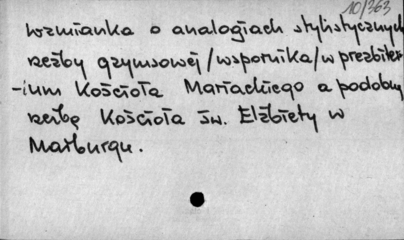 10/363
wzmianka o analogiach stylistycznych
rzeźby gzymsowej /wspornika/ w prezbiter
-ium Kościoła Mariackiego a podobną
rzeźbę Kościoła św. Elżbiety w
Marburgu.